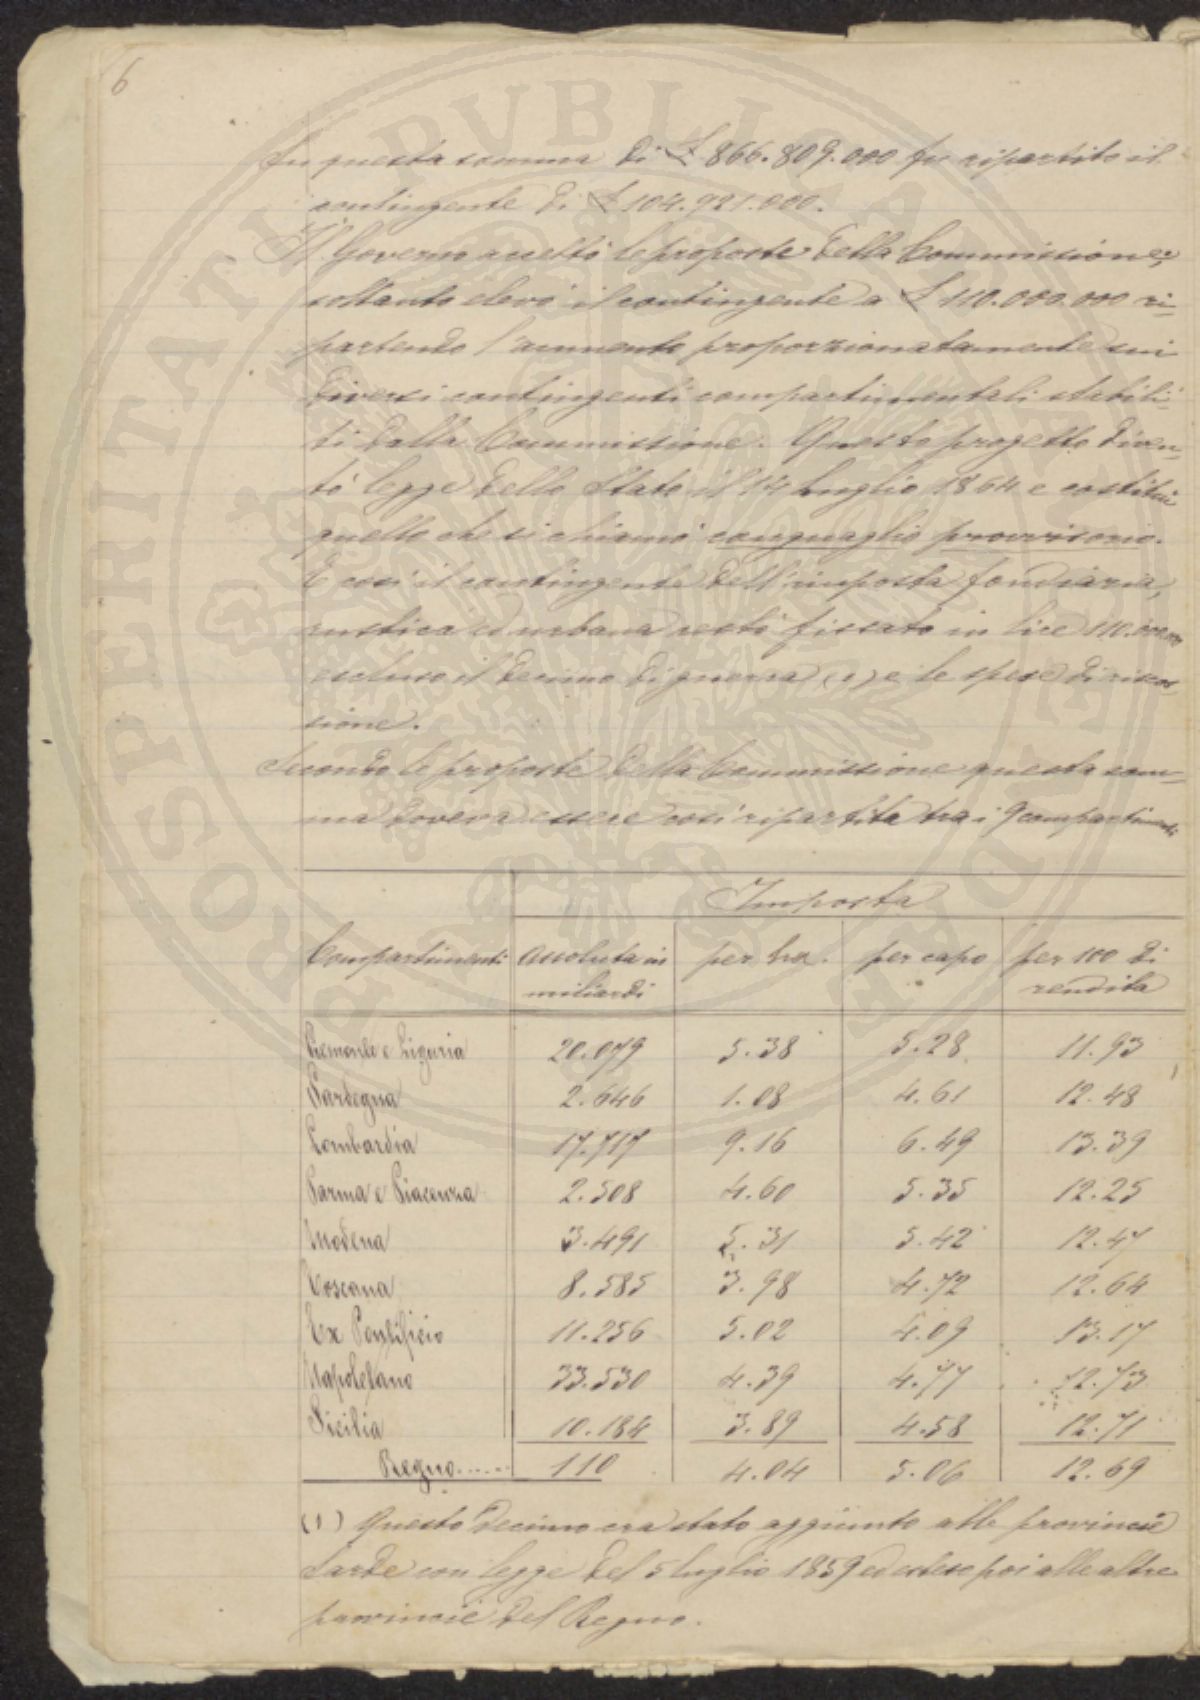 6
In questa somma di £ 866.809.000 fu ripartito il
contingente di £ 104.921.000.
Il Governo accettò le proposte della Commissione,
soltanto elevò il contingente a £ 110.000.000 ri-
partendo l'aumento proporzionatamente sui
diversi contingenti compartimentali stabili-
ti dalla Commissione. Questo progetto diven-
tò legge dello Stato il 14 luglio 1864 e costituì
quello che si chiamò conguaglio provvisorio.
E così il contingente dell'imposta fondiaria,
rustica ed urbana restò fissato in lire 110.000.000
escluso il decimo di guerra (1) e le spese di riscos-
sione.
Secondo le proposte della Commissione questa som-
ma doveva essere così ripartita tra i 9 compartimenti
Imposta
Compartimenti assoluta in per ha. per capo per 100 di
miliardi rendita
Piemonte e Liguria 20.079 5.38 5.28 11.93
Sardegna 2.646 1.08 4.61 12.48
Lombardia 17.717 9.16 6.49 13.39
Parma e Piacenza 2.508 4.60 5.35 12.25
Modena 3.491 5.31 5.42 12.47
Toscana 8.585 3.98 4.72 12.64
Ex Pontificio 11.256 5.02 4.09 13.17
Napoletano 33.530 4.39 4.77 12.73
Sicilia 10.184 3.89 4.58 12.71
Regno...... 110 4.04 5.06 12.69
(1) Questo decimo era stato aggiunto alle provincie
Sarde con legge del 5 luglio 1859 ed esteso poi alle altre
provincie del Regno.
PROSPERITATI PUBLICAE AUGENDAE